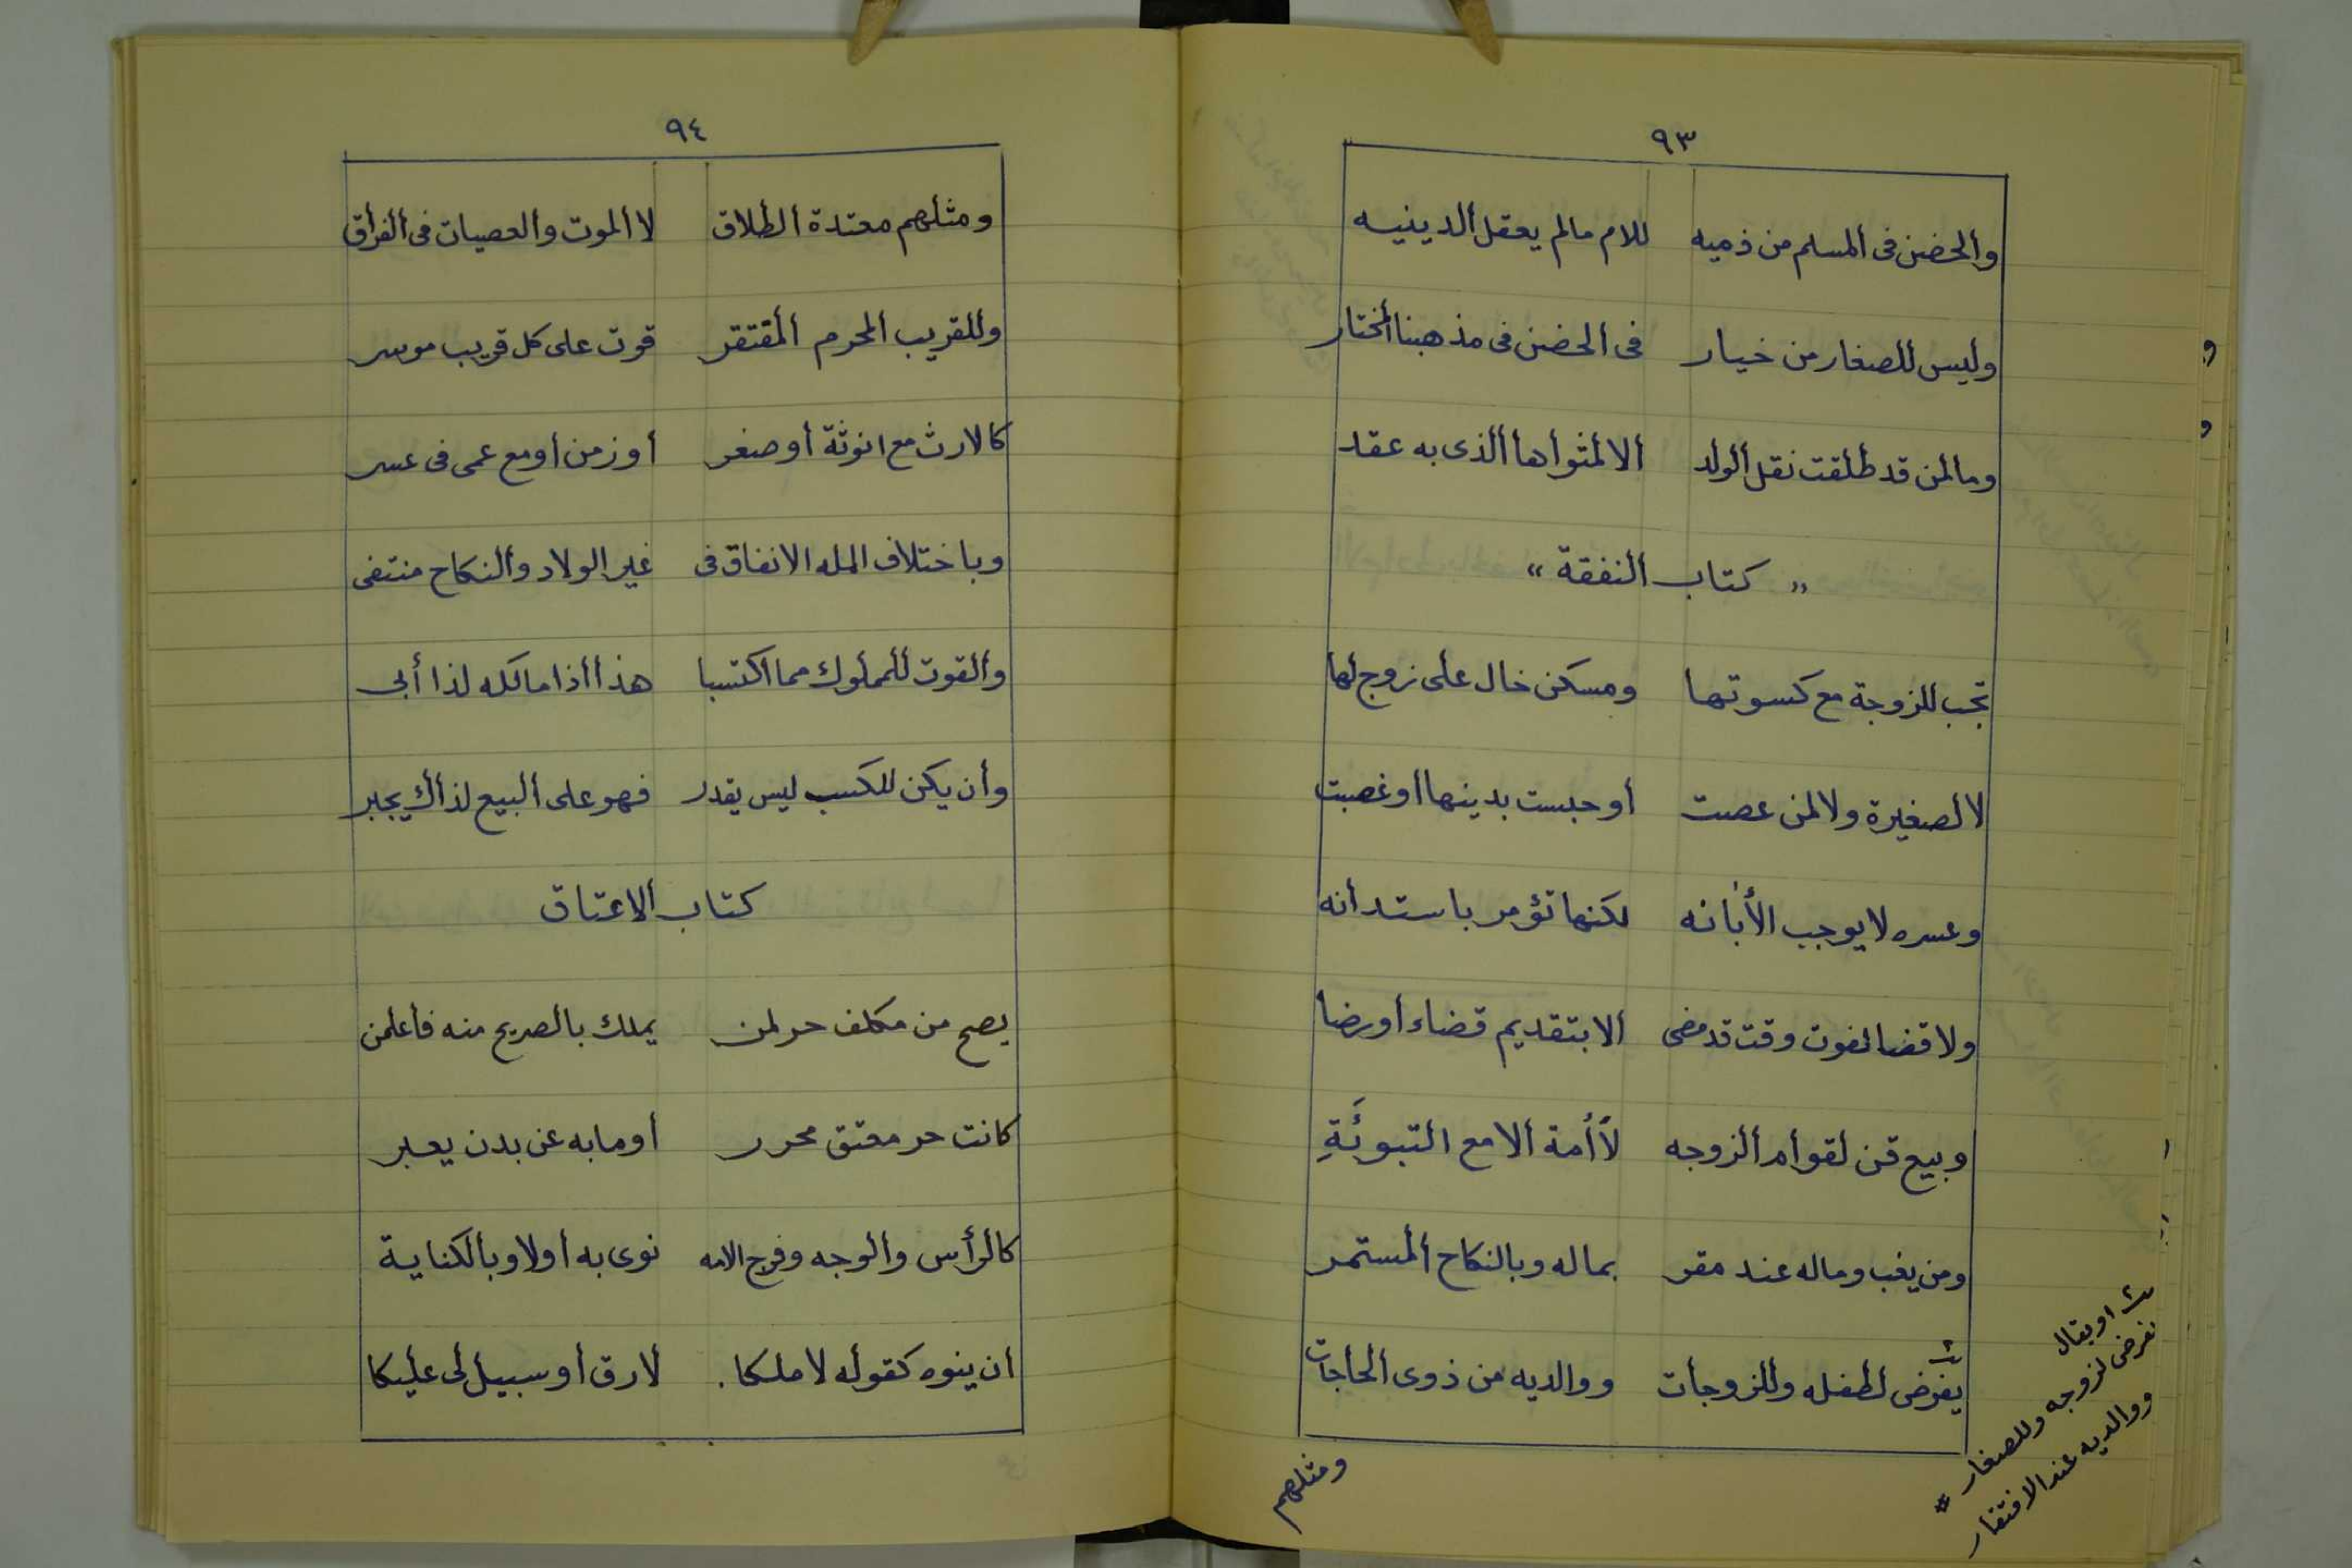 ٩٣
والحضن فى المسلم من ذميه للام مالم يعقل الدينيه
وليس للصغار من خيار فى الحضن فى مذهبنا المختار
وما لمن قد طلقت نقل الولد الا لمثواها الذى به عقد
" كتاب النفقة "
تجب للزوجة مع كسوتها ومسكن خال على زوج لها
لا لصغيرة ولا لمن عصت أو حبست بدينها أو غصبت
وعسره لا يوجب الأبانه لكنها تؤمر باستدانه
ولا قضا لفوت وقت قد مضى الا بتقديم قضاء أو رضا
وبيع قن لقوام الزوجه لأ أمة الا مع التبوئَةِ
ومن يغب وماله عند مقر بماله وبالنكاح المستمر
يفرض لطفله وللزوجات ووالديه من ذوى الحاجات
او يقال
نفرض لزوجه وللصغار #
ووالديه عند الافتقار
ومثلهم
٩٤
ومثلهم معتدة الطلاق لا الموت والعصيان فى الفراق
وللقريب المحرم المفتقر قوت على كل قريب موسر
كالارث مع انوثة أو صغر أو زمن أو مع عمى فى عسر
وباختلاف المله الانفاق فى غير الولاد والنكاح منتفى
والقوت للمملوك مما اكتسبا هذا أذا مالكه لذا أبى
وأن يكن للكسب ليس يقدر فهو على البيع لذاك يجبر
كتاب الاعتاق
يصح من مكلف حر لمن يملك بالصريح منه فاعلمن
كانت حر معتق محرر أو ما به عن بدن يعبر
كالرأس والوجه وفرج الامه نوى به أولا وبالكناية
ان ينوه كقوله لا ملكا . لارق أو سبيل لى عليكا